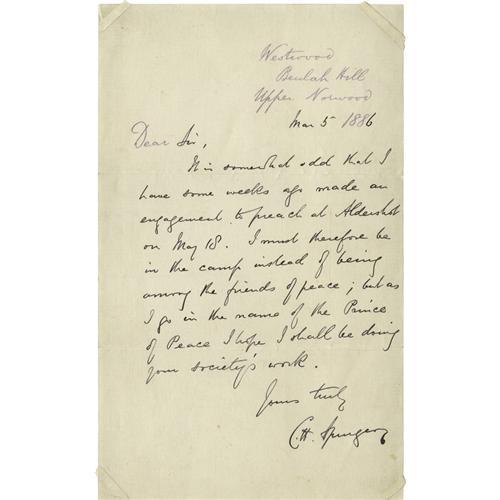 Westwood
Beulah Hill
Upper Norwood
Mar 5 1886
Dear Sir,
It is somewhat odd that I
have some weeks ago made an
engagement to preach at Aldershot
on May 18. I must therefore be
in the camp instead of being
among the friends of peace; but as
I go in the name of the Prince
of Peace I hope I shall be doing
your society's work.
Yours truly
C. H. Spurgeon